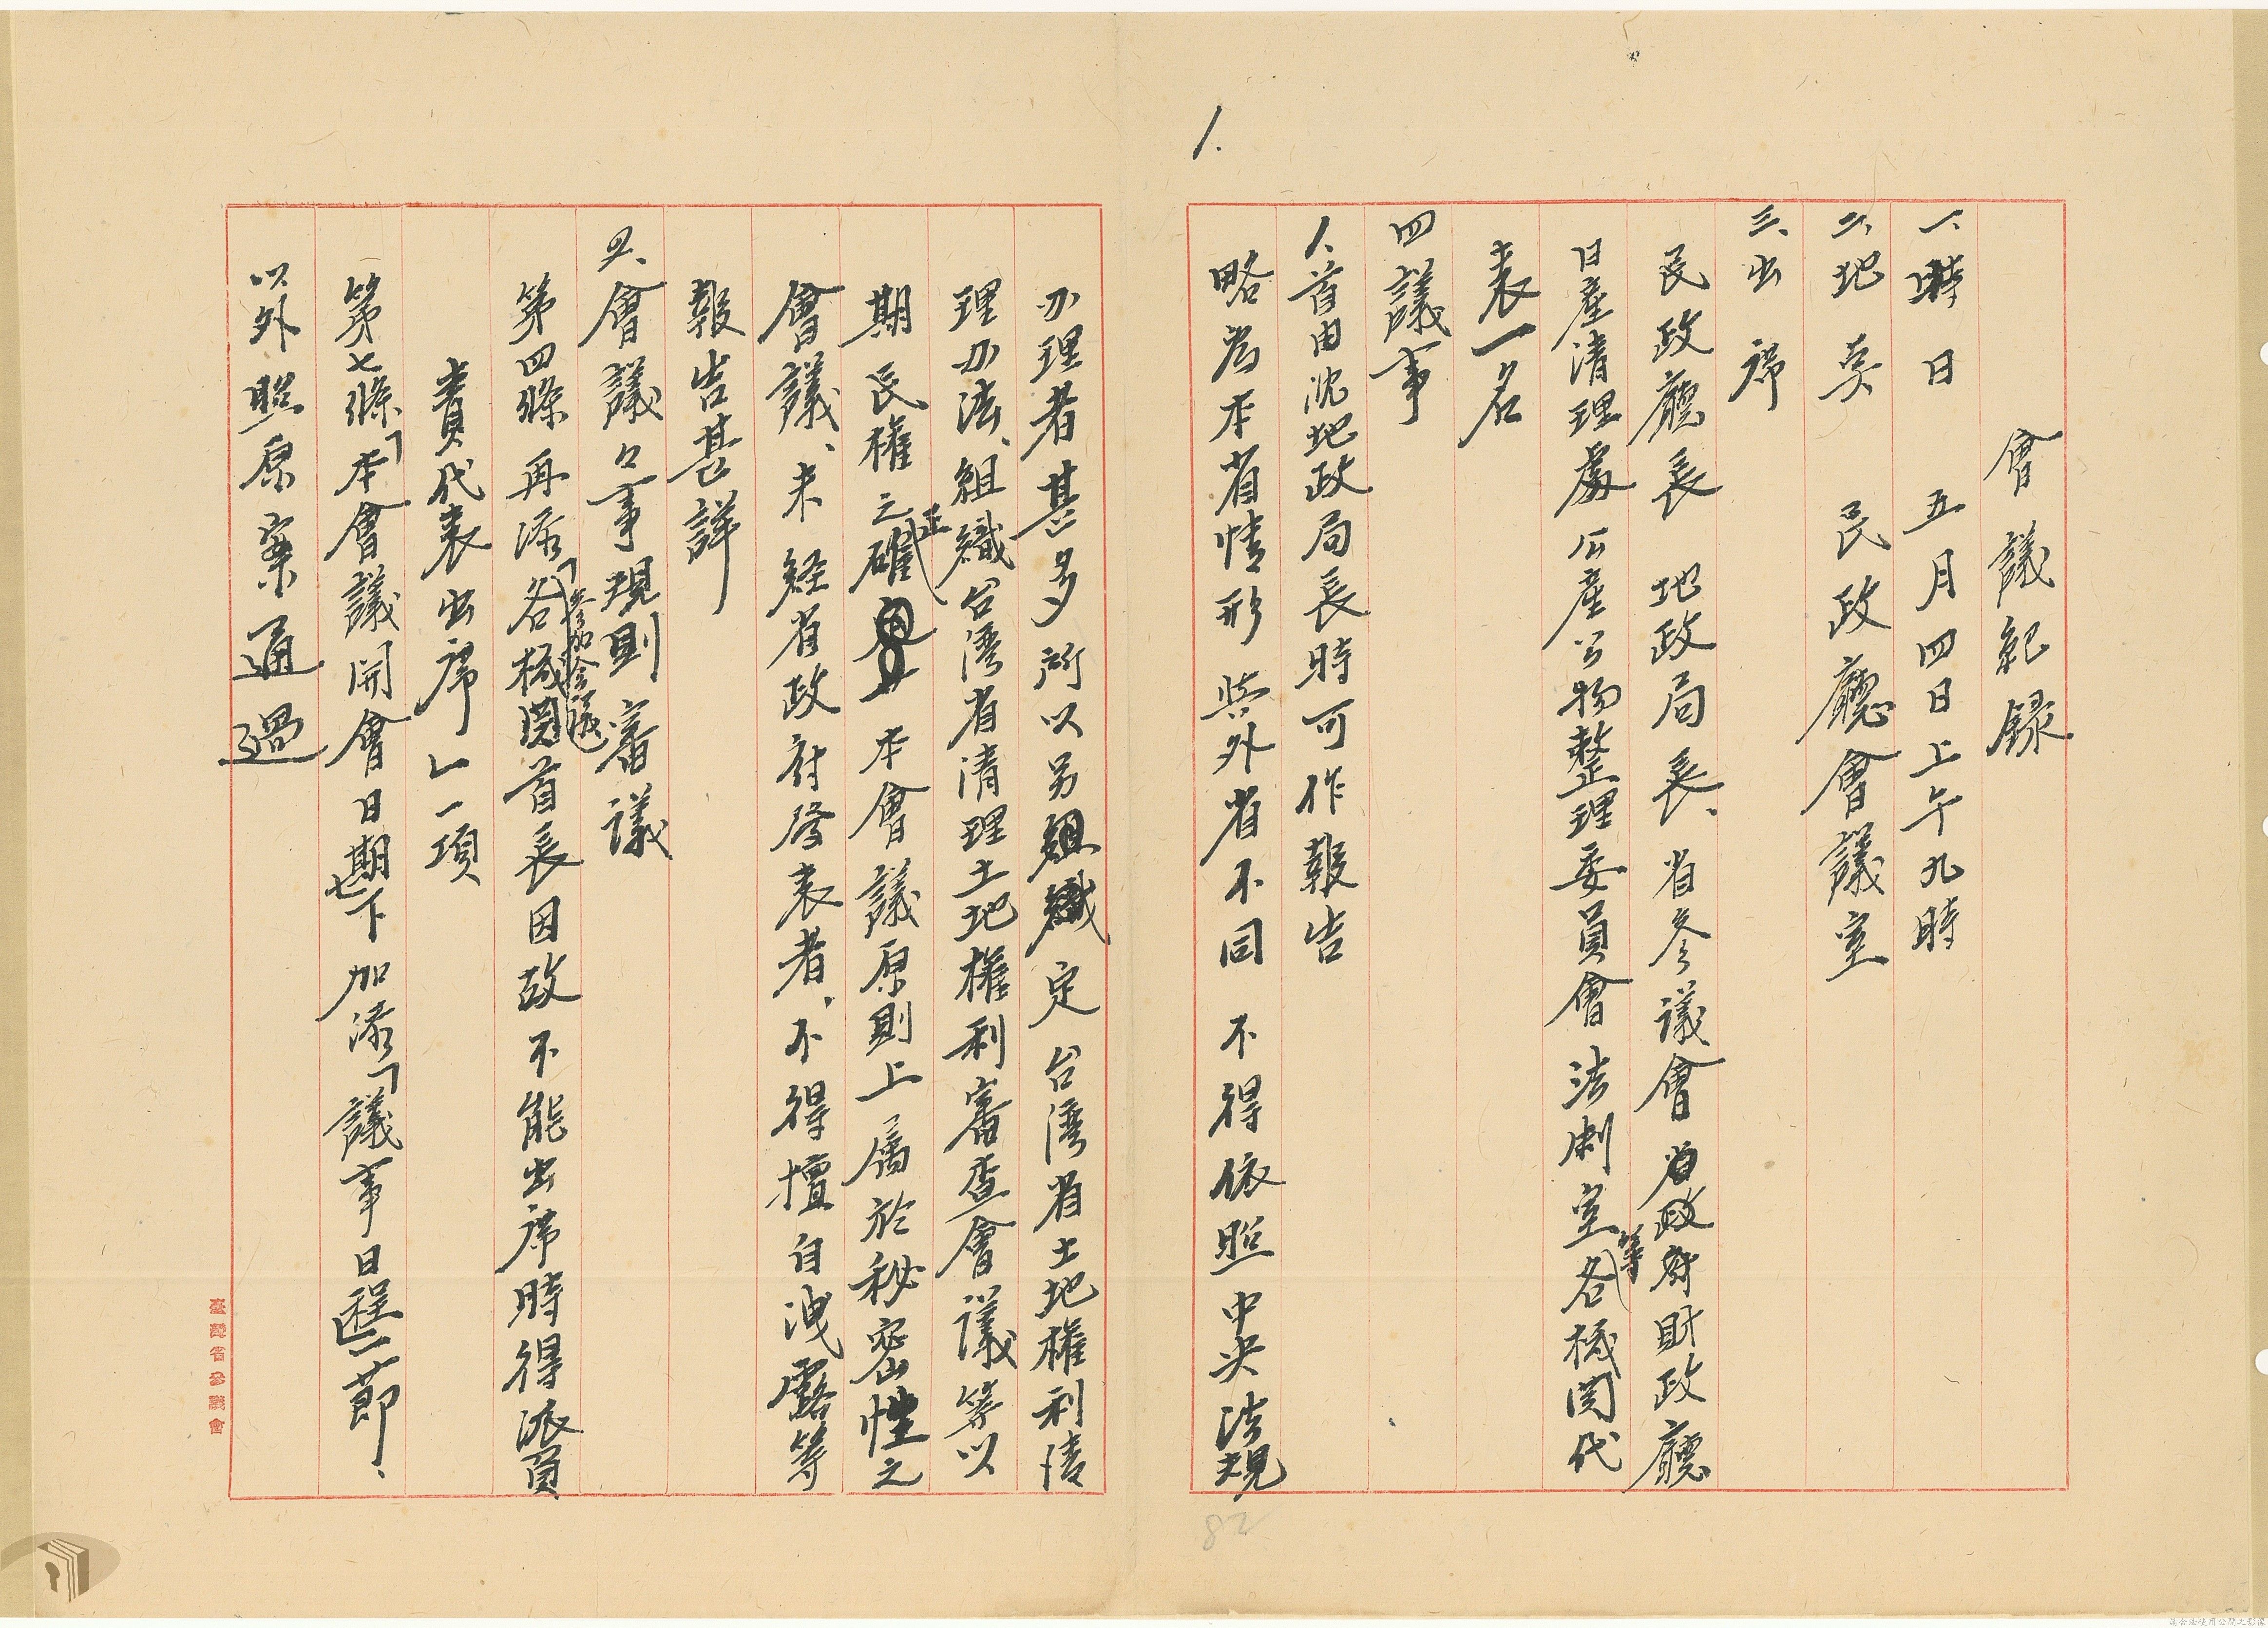 1.
會議紀録
一、時日　五月四日上午九時
二、地奌　民政廳會議室
三、出席
民政廳長　地政局長、省参議會　省政府財政廳
日産清理處公産公物整理委員會法制室等各機関代
表一名
四議事
1、首由沈地政局長時可作報告
略為本省情形與外省不同不得依照中央法規
办理者甚多所以另組織定台湾省土地權利清
理办法、組織台湾省清理土地權利審查會議等以
期民權之正確　本會議原則上属於秘密性之
會議、未経省政府發表者、不得擅自洩露等
報告甚詳
2、會議々事規則審議
第四條再添「參加會議各機関首長因故不能出席時得派員
責代表出席」一項
第七條「本會議開會日期」下加添「議事日程」一節、
以外照原案通過
臺灣省參議會
82
請合法使用公開之影像